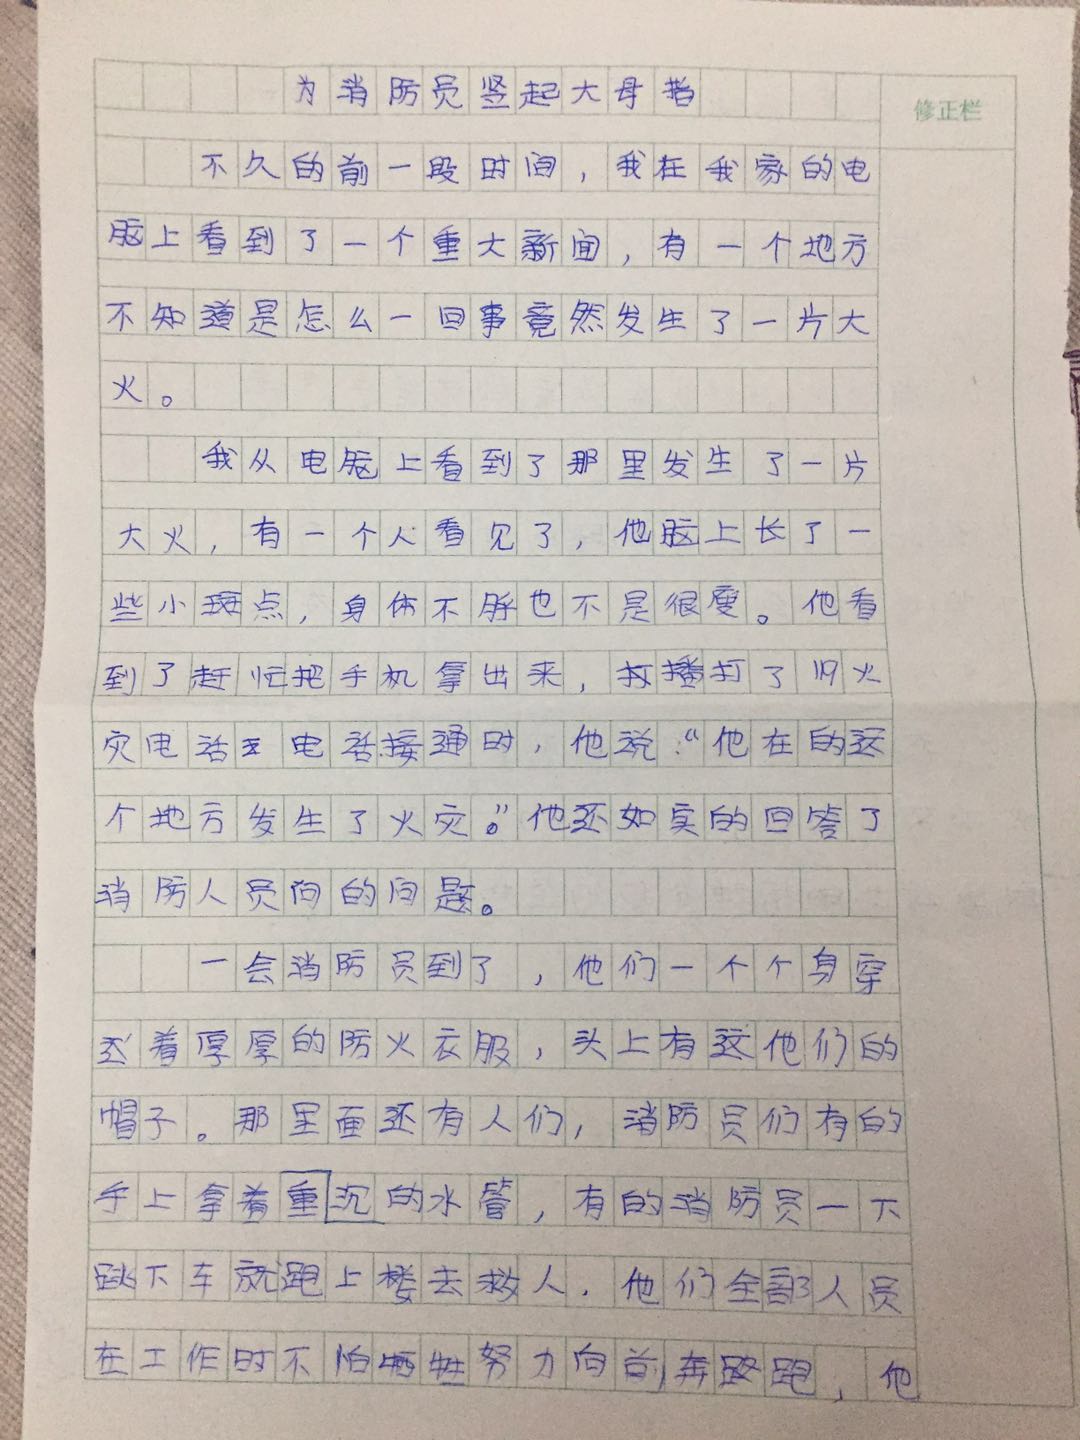 为消防员竖起大母指
修正栏
不久的前一段时间，我在我家的电
脑上看到了一个重大新闻，有一个地方
不知道是怎么一回事竟然发生了一片大
火。
我从电脑上看到了那里发生了一片
大火，有一个人看见了，他脑上长了一
些小斑点，身体不胖也不是很瘦。他看
到了赶忙把手机拿出来，播打了119火
灾电话电话接通时，他说：“他在的这
个地方发生了火灾。”他还如实的回答了
消防人员问的问题。
一会消防员到了，他们一个个身穿
着厚厚的防火衣服，头上有这他们的
帽子。那里面还有人们，消防员们有的
手上拿着重沉的水管，有的消防员一下
跳下车就跑上楼去救人．他们全部人员
在工作时不怕牺牲努力向前奔跑，他